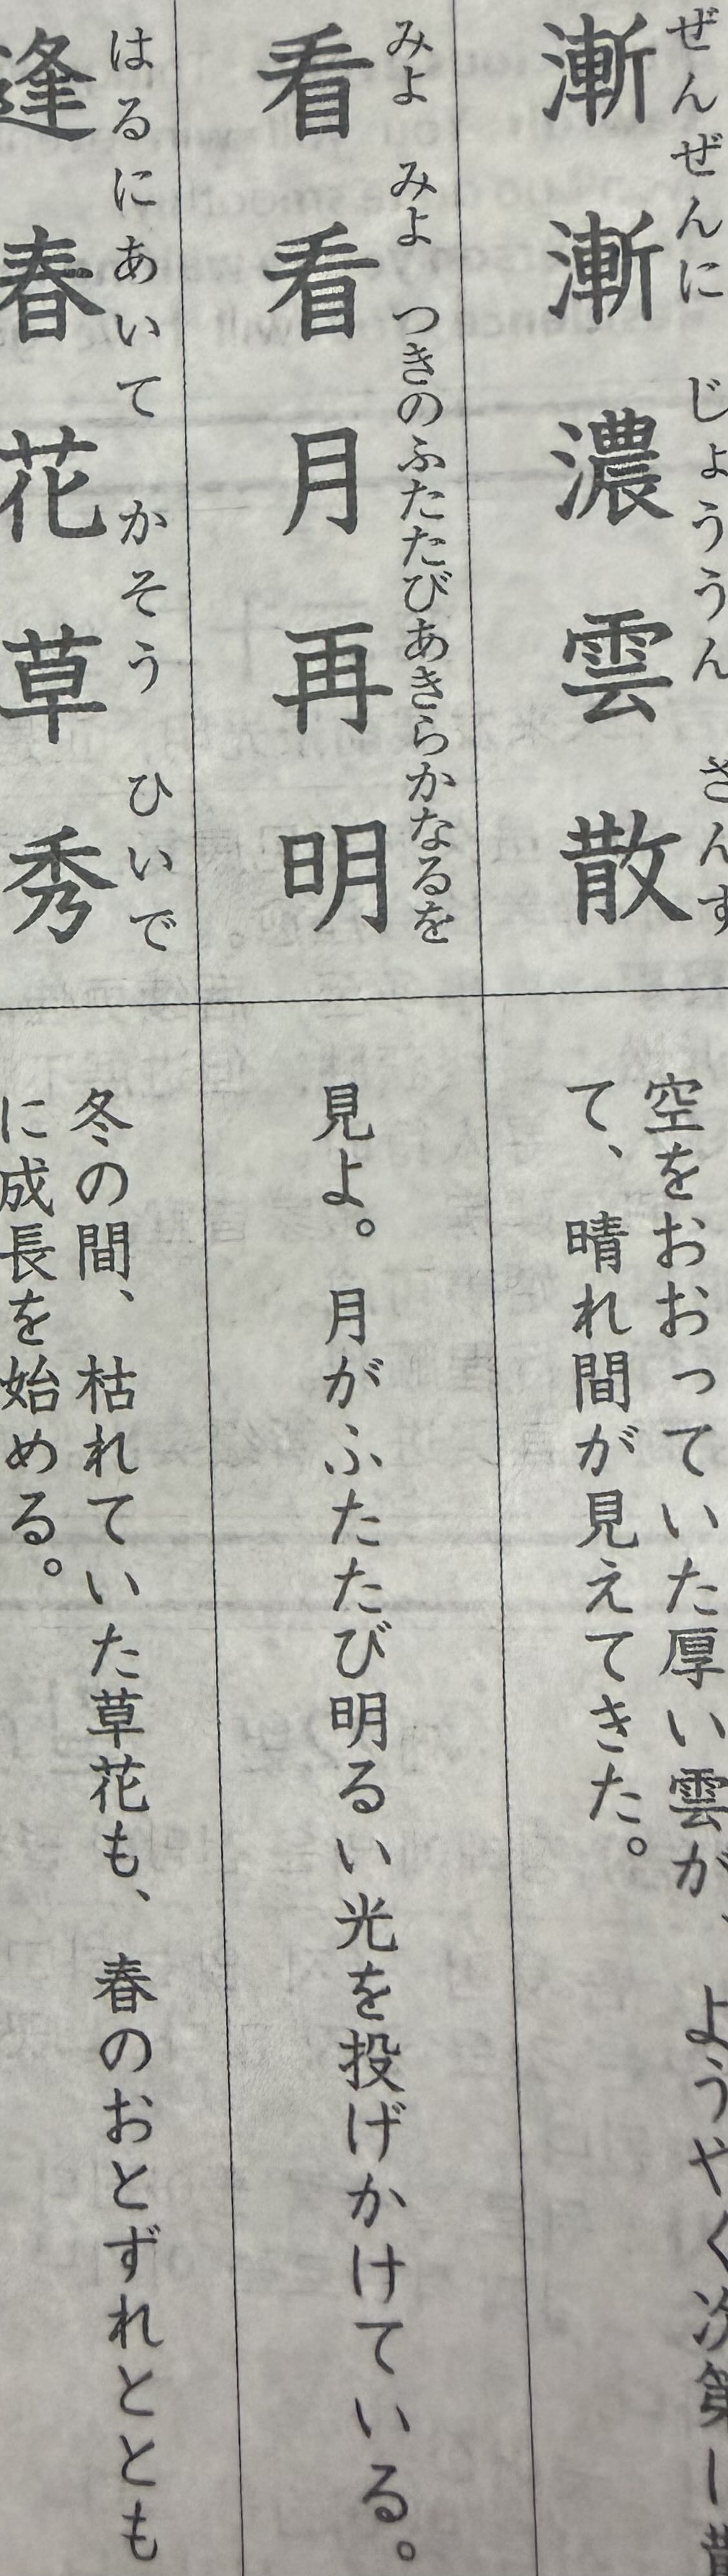 ぜんぜんに じょううん さんす
漸漸濃雲散
空をおおっていた厚い雲が、ようやく次第に
て、晴れ間が見えてきた。
みよ みよ つきのふたたびあきらかなるを
看看月再明
見よ。月がふたたび明るい光を投げかけている。
はるにあいて かそう ひいで
逢春花草秀
冬の間、枯れていた草花も、春のおとずれととも
に成長を始める。